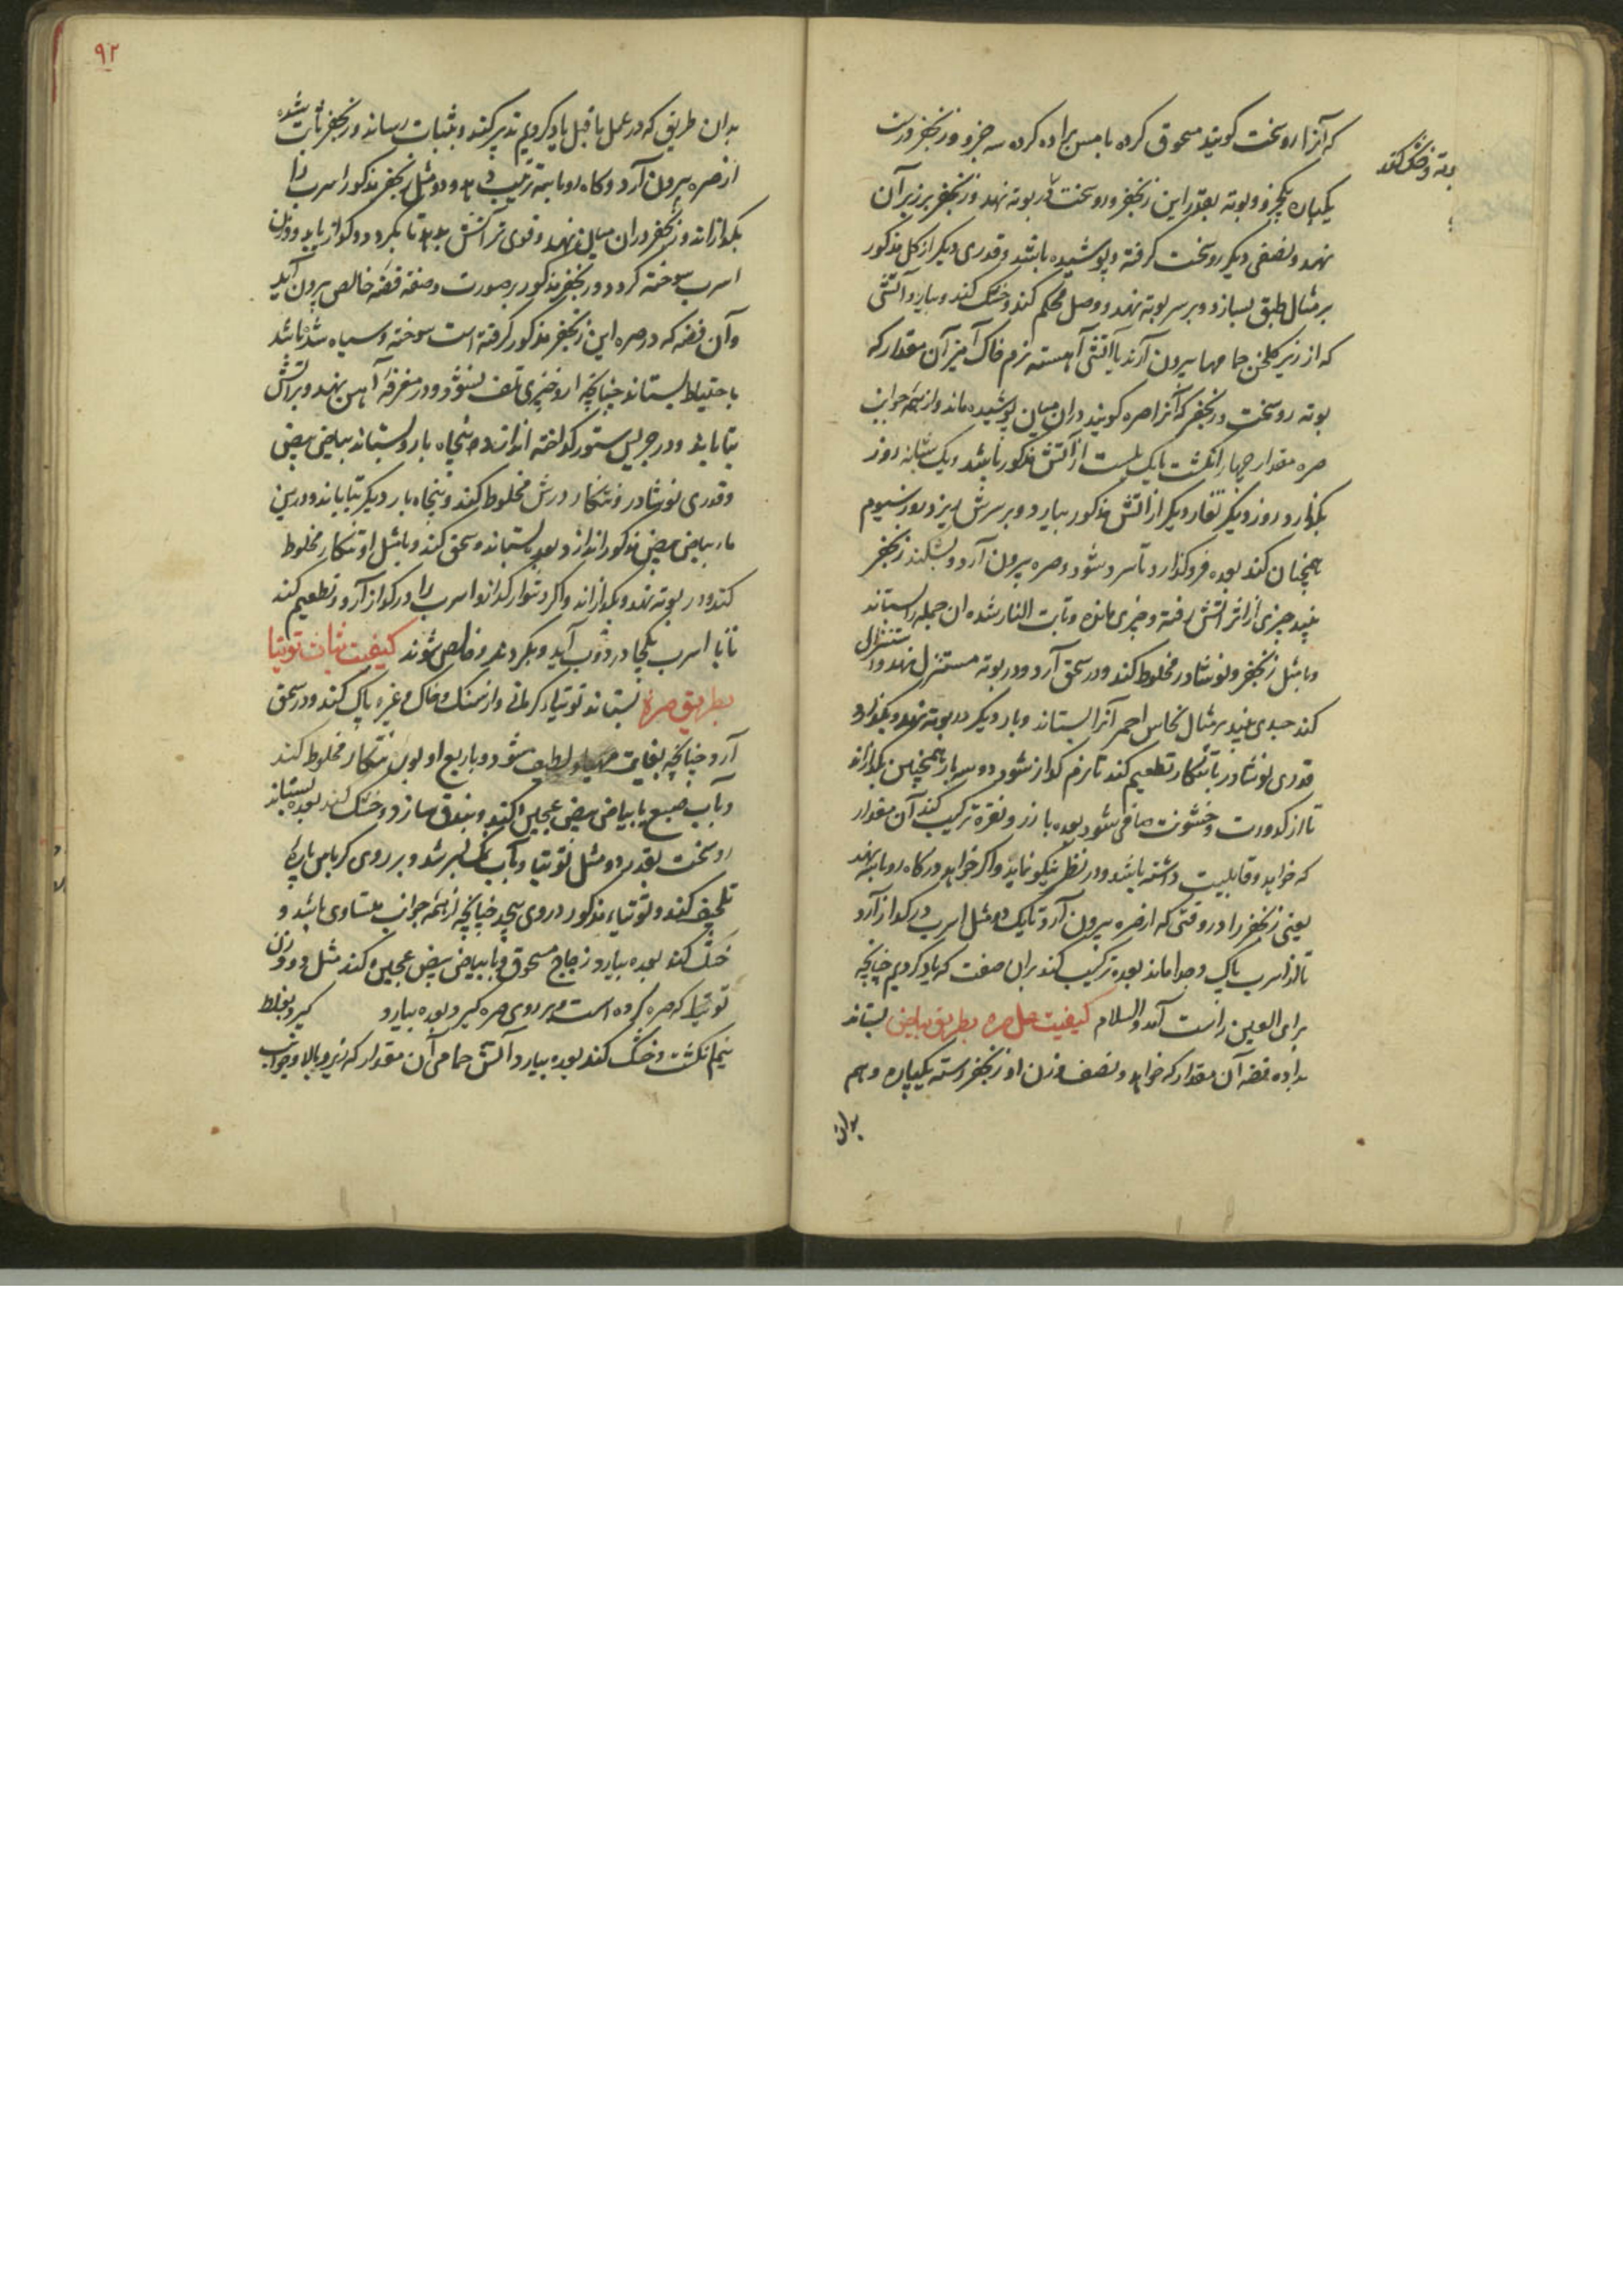 که آنرا روسخت کویند مسحوق کرده با مس براده کرده سه جزو و زنجفر درست
بوته و خشک کند
یکپاره یکجزو و بوته بقدر این زنجفر و روسخت در بوته نهد و زنجفر بر زیر آن
نهد و نصفی دیکر روسخت کرفته و پوشیده باشد و قدری دیکر از کل مذکور
بر مثال طبق بسازد و بر سر بوته نهد و وصل محکم کند و خشک کند و بیارد آتشی
که از زیر کلخن حمامها بیرون آرند یا آتشی آهسته نرم خاک آمیز آن مقدار که
بوته روسخت و زنجفر که آنرا صره کویند در ان میان پوشیده ماند و از همه جوانب
صره مقدار چهار انکشت یا یک بلست از آتش مذکور باشد و یک شبانه روز
بکذارد و روز دیکر تغار دیکر از آتش مذکور بیارد و بر سرش ریزد و روز سیوم
همچنان کند بعده فرو کذارد تا سرد شود و صره بیرون آرد و بشکند زنجفر
بیند چیزی از اثر آتش رفته و چیزی مانده و ثابت النار شده ان جمله را بستاند
و با مثل زنجفر و نوشادر مخلوط کند و در سحق آرد و در بوته مستنزل نهد و استنزال
کند جسدی بیند بر مثال نحاس احمر آنرا بستاند و بار دیکر در بوته نهد و بکدازد
قدری نوشادر با تنکار تطعیم کند تا نرم کداز شود دو سه بار همچنین بکدازاند
تا از کدورت و خشونت صافی شود بعده با زر و نقره ترکیب کند آن مقدار
که خواهد و قابلیت داشته باشد و در نظر نیکو نماید و اکر خواهد در کاه روباسیه نهد
یعنی زنجفر را در وقتی که از صره بیرون آرد تا یک دو مثل اسرب در کداز آرد
تا از اسرب پاک و جدا ماند بعده ترکیب کند بران صفت که یاد کردیم چنانچه
برای العین راست آید والسلام کیفیت عمل صره بطریق بیاض بستاند
براده فضه آن مقدار که خواهد و نصف وزن او زنجفر رسته یکپاره و هم
بدان
۹۲
بدان طریق که در عمل ما قبل یاد کردیم تدبیر کنند و بثبات رساند و زنجفر ثابت شده
از صره بیرون آرد و کاه روباسیه ترتیب دهد و دو مثل زنجفر مذکور اسرب را
بکدازاند و زنجفر در ان میان نهد و قوی تر آتش بدهد تا بکردد و کداز یابد و وزن
اسرب سوخته کردد و زنجفر مذکور بر صورت و صفة فضه خالص بیرون آید
وآن فضه که در صره این زنجفر مذکور کرفته است سوخته و سیاه شده باشد
باحتیاط بستاند چنانچه از و چیزی تلف نشود و در مغرفه آهن نهد و بر آتش
بتاباند و در چربش ستور کداخته اندازد و پنجاه بار و بستاند بیاض بیض
و قدری نوشادر و تنکار درش مخلوط کند و پنجاه بار دیکر بتاباند و در ین
ماء بیاض بیض مذکور اندازد و بعده بستاند و سحق کند و با مثل او تنکار مخلوط
کند و در بوته نهد و بکدازاند و اکر دشوار کدازد اسرب را در کداز آرد و تطعیم کند
تا با اسرب یکجا در ذوب آید و بکردند و خالص شوند کیفیت ثبات توتیا
بطریق صره بستاند توتیاء کرمانی و از سنک و خاک و غیره پاک کند و در سحق
آرد چنانچه بغایت مهیا و لطیف شود و با ربع او بورق تنکار مخلوط کند
و بآب صمغ یا بیاض بیض عجین کند و بندق سازد و خشک کند بعده بستاند
روسخت بقدر دو مثل توتیا و بآب نمک بسرشد و بر روی کرباس پاره
تلحیف کند و توتیاء مذکور در وی پیچد چنانچه از همه جوانب متساوی باشد و
خشک کند بعده بیارد زجاج مسحوق و با بیاض بیض عجین کند مثل دو وزن
توتیا که صره کرده است و بر روی صره کیرد بعده بیارد کیرد بغلظ
نیم انکشت و خشک کند بعده بیارد آتش حمامی آن مقدار که زیر و بالا و جوانب